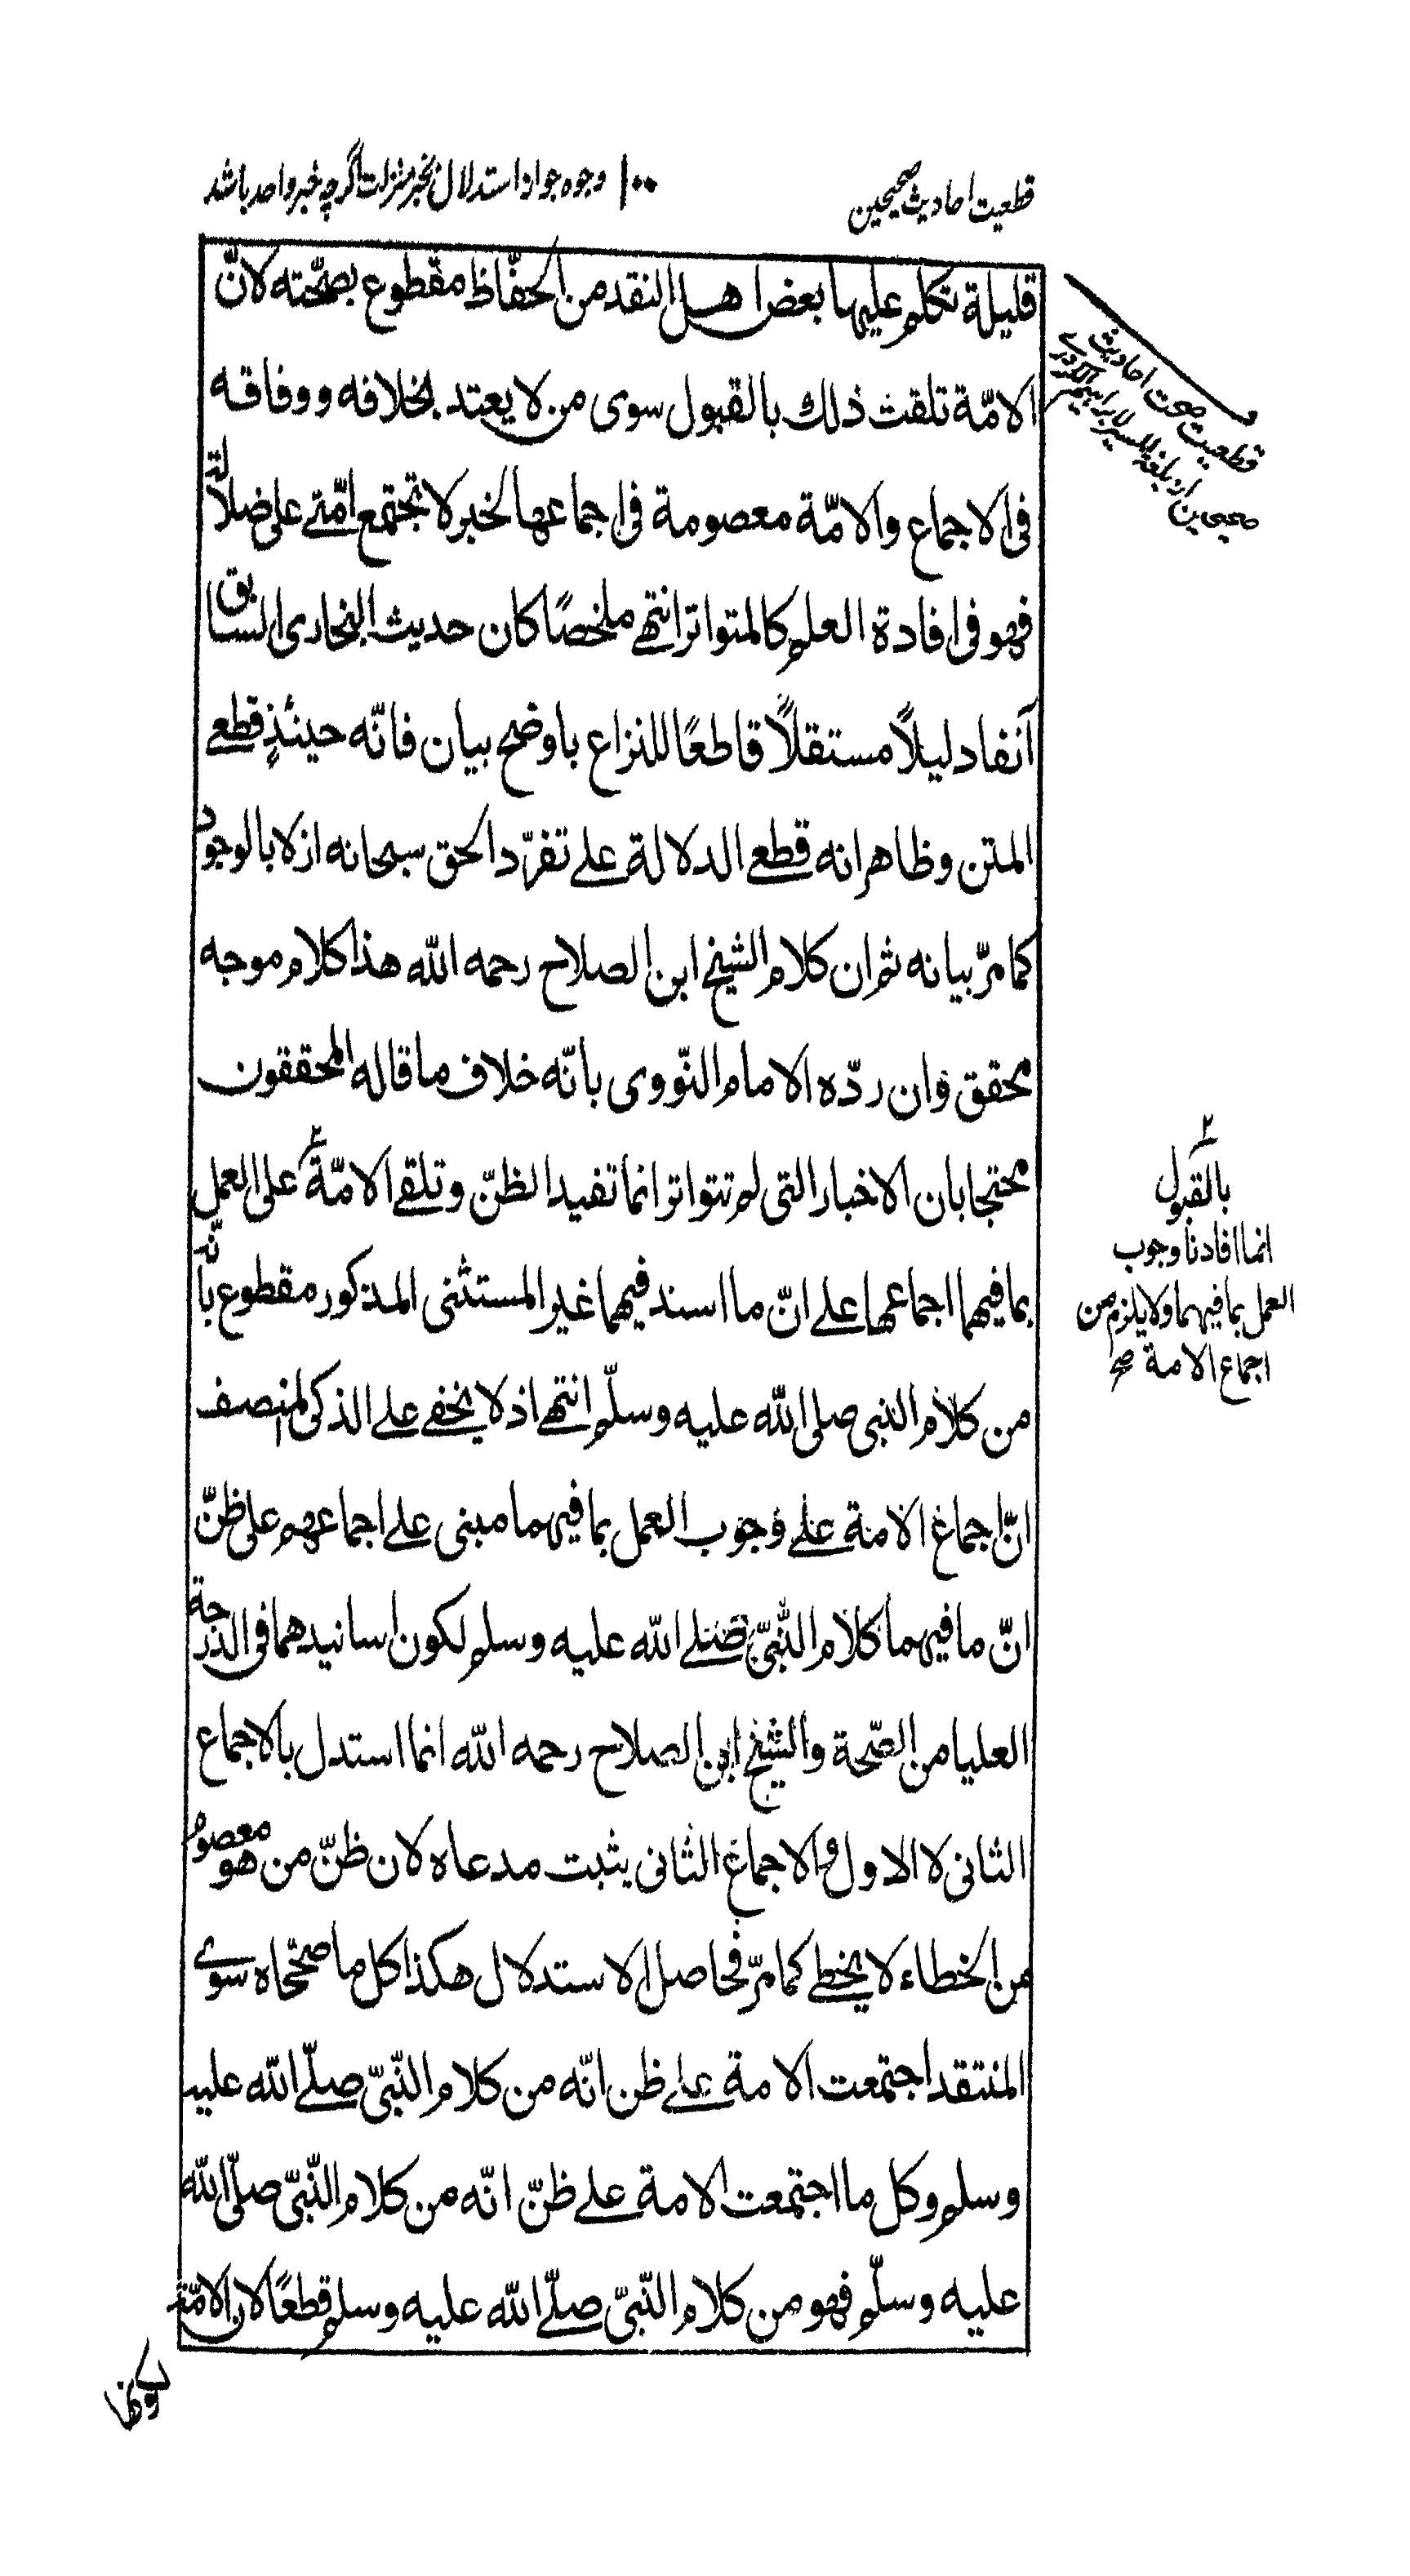 قطعیت احادیث صحیحین
۱۰۰ وجوه جواز استدلال بخبر منزلت اگرچه خبر واحد باشد
قليلة تكلم عليها بعض اهل النقد من الحفّاظ مقطوع بصحّته لانّ
الامّة تلقت ذلك بالقبول سوى من لا يعتد بخلافه ووفاقه
فى الاجماع والامّة معصومة فى اجماعها لخبر لا تجتمع امّتى على ضلالة
فهو فى افادة العلم كالمتواتر انتهى ملخصًا كان حديث البخارى السابق
آنفا دليلاً مستقلاً قاطعًا للنزاع باوضح بيان فانّه حينئذٍ قطعى
المتن وظاهر انه قطعى الدلالة على تفرّد الحق سبحانه ازلا بالوجود
كما مرّ بيانه ثم ان كلام الشيخ ابن الصلاح رحمه الله هذا كلام موجه
محقق وان ردّه الامام النّووى بانّه خلاف ما قاله المحققون
محتجا بان الاخبار التى لم تتواتر انما تفيد الظنّ وتلقى الامّة ٢ على العمل
بما فيهما اجماعها على انّ ما اسند فيهما غير المستثنى المذكور مقطوع بانّه
من كلام النبى صلى الله عليه وسلّم انتهى اذ لا يخفى على الذكى المنصف
انّ اجماع الامة على وجوب العمل بما فيهما مبنى على اجماعهم على ظنّ
انّ ما فيهما كلام النّبىّ صلى الله عليه وسلم لكون اسانيدهما فى الدرجة
العليا من الصّحة والشيخ ابن الصلاح رحمه الله انما استدل بالاجماع
الثانى لا الاول والاجماع الثانى يثبت مدعاه لان ظنّ من هو معصوم
من الخطاء لا يخطى كما مرّ فحاصل الاستدلال هكذا كل ما صحّحاه سوى
المنتقد اجتمعت الامة على ظن انّه من كلام النّبىّ صلّى الله عليه
وسلم وكل ما اجتمعت الامة على ظنّ انّه من كلام النّبىّ صلّى الله
عليه وسلّم فهو من كلام النّبىّ صلّى الله عليه وسلم قطعًا لان الامّة
لكونها
قطعیت صحت احادیث
صحیحین از بلغة المسیر لابراهیم الکردی
٢
بالقبول
انما افادنا وجوب
العمل بما فيهما ولا يلزم من
اجماع الامة صح